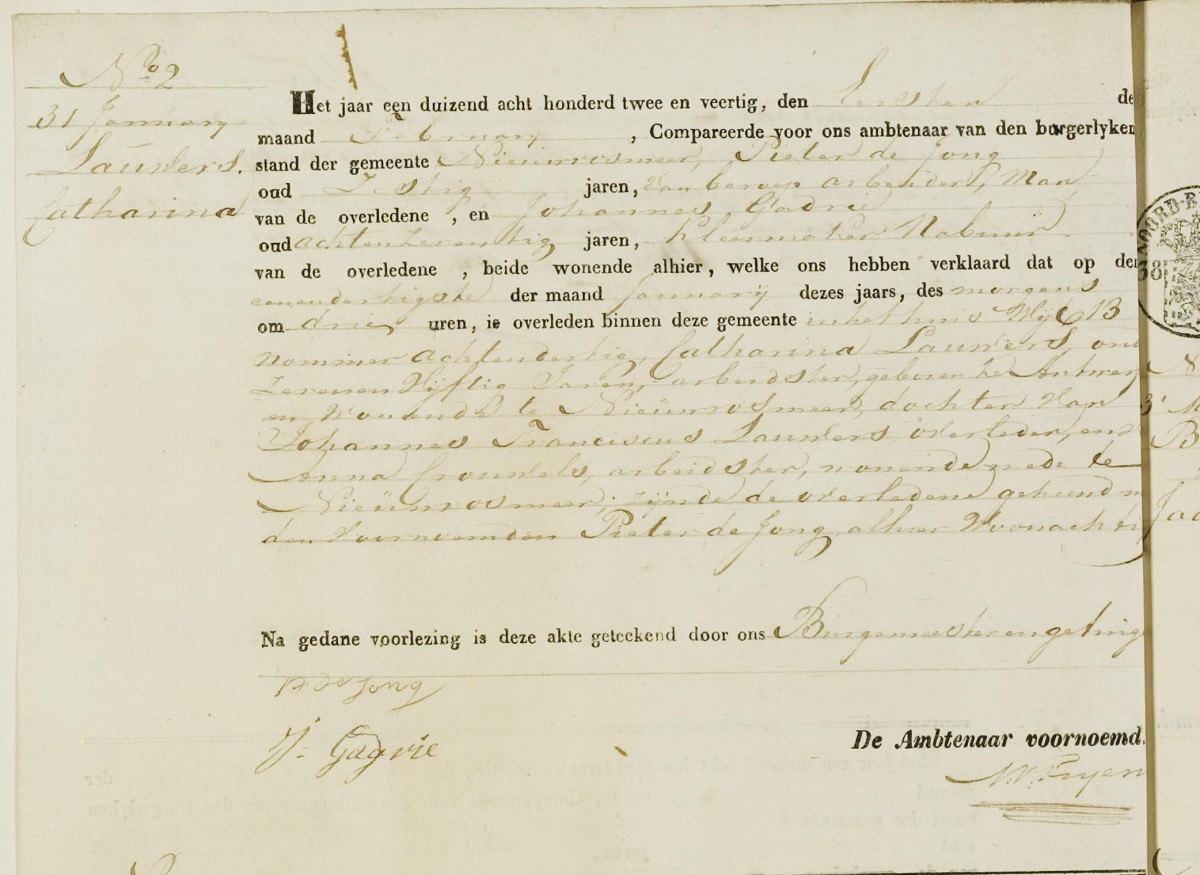 No 2
31 January
Lauwers.
Catharina
Het jaar een duizend acht honderd twee en veertig, den Eersten de
maand February, Compareerde voor ons ambtenaar van den burgerlyken
stand der gemeente Nieuwvosmeer, Pieter de Jong
oud Zestig jaren, van beroep arbeider, Man
van de overledene, en Johannes Gadrie
oud achtenzeventig jaren, kleermaker Nabuur
van de overledene, beide wonende alhier, welke ons hebben verklaard dat op den
eenendertigste der maand January dezes jaars, des morgens
om drie uren, is overleden binnen deze gemeente in het huis Wyk 13
nommer achtendertig, Catharina Lauwers, oud
Zevenen Vyftig Jaren, arbeidster, geboren te Antwerp
en wonende te Nieuwvosmeer, dochter van
Johannes Franciscus Lauwers, overleden, en
Anna Crouwels, arbeidster, wonende mede te
Nieuwvosmeer, zynde de overledene gehuwd m
den voornoemden Pieter de Jong alhier Woonacht
Na gedane voorlezing is deze akte geteekend door ons Burgemeester en getuig
P de Jong
J. Gadrie
De Ambtenaar voornoemd.